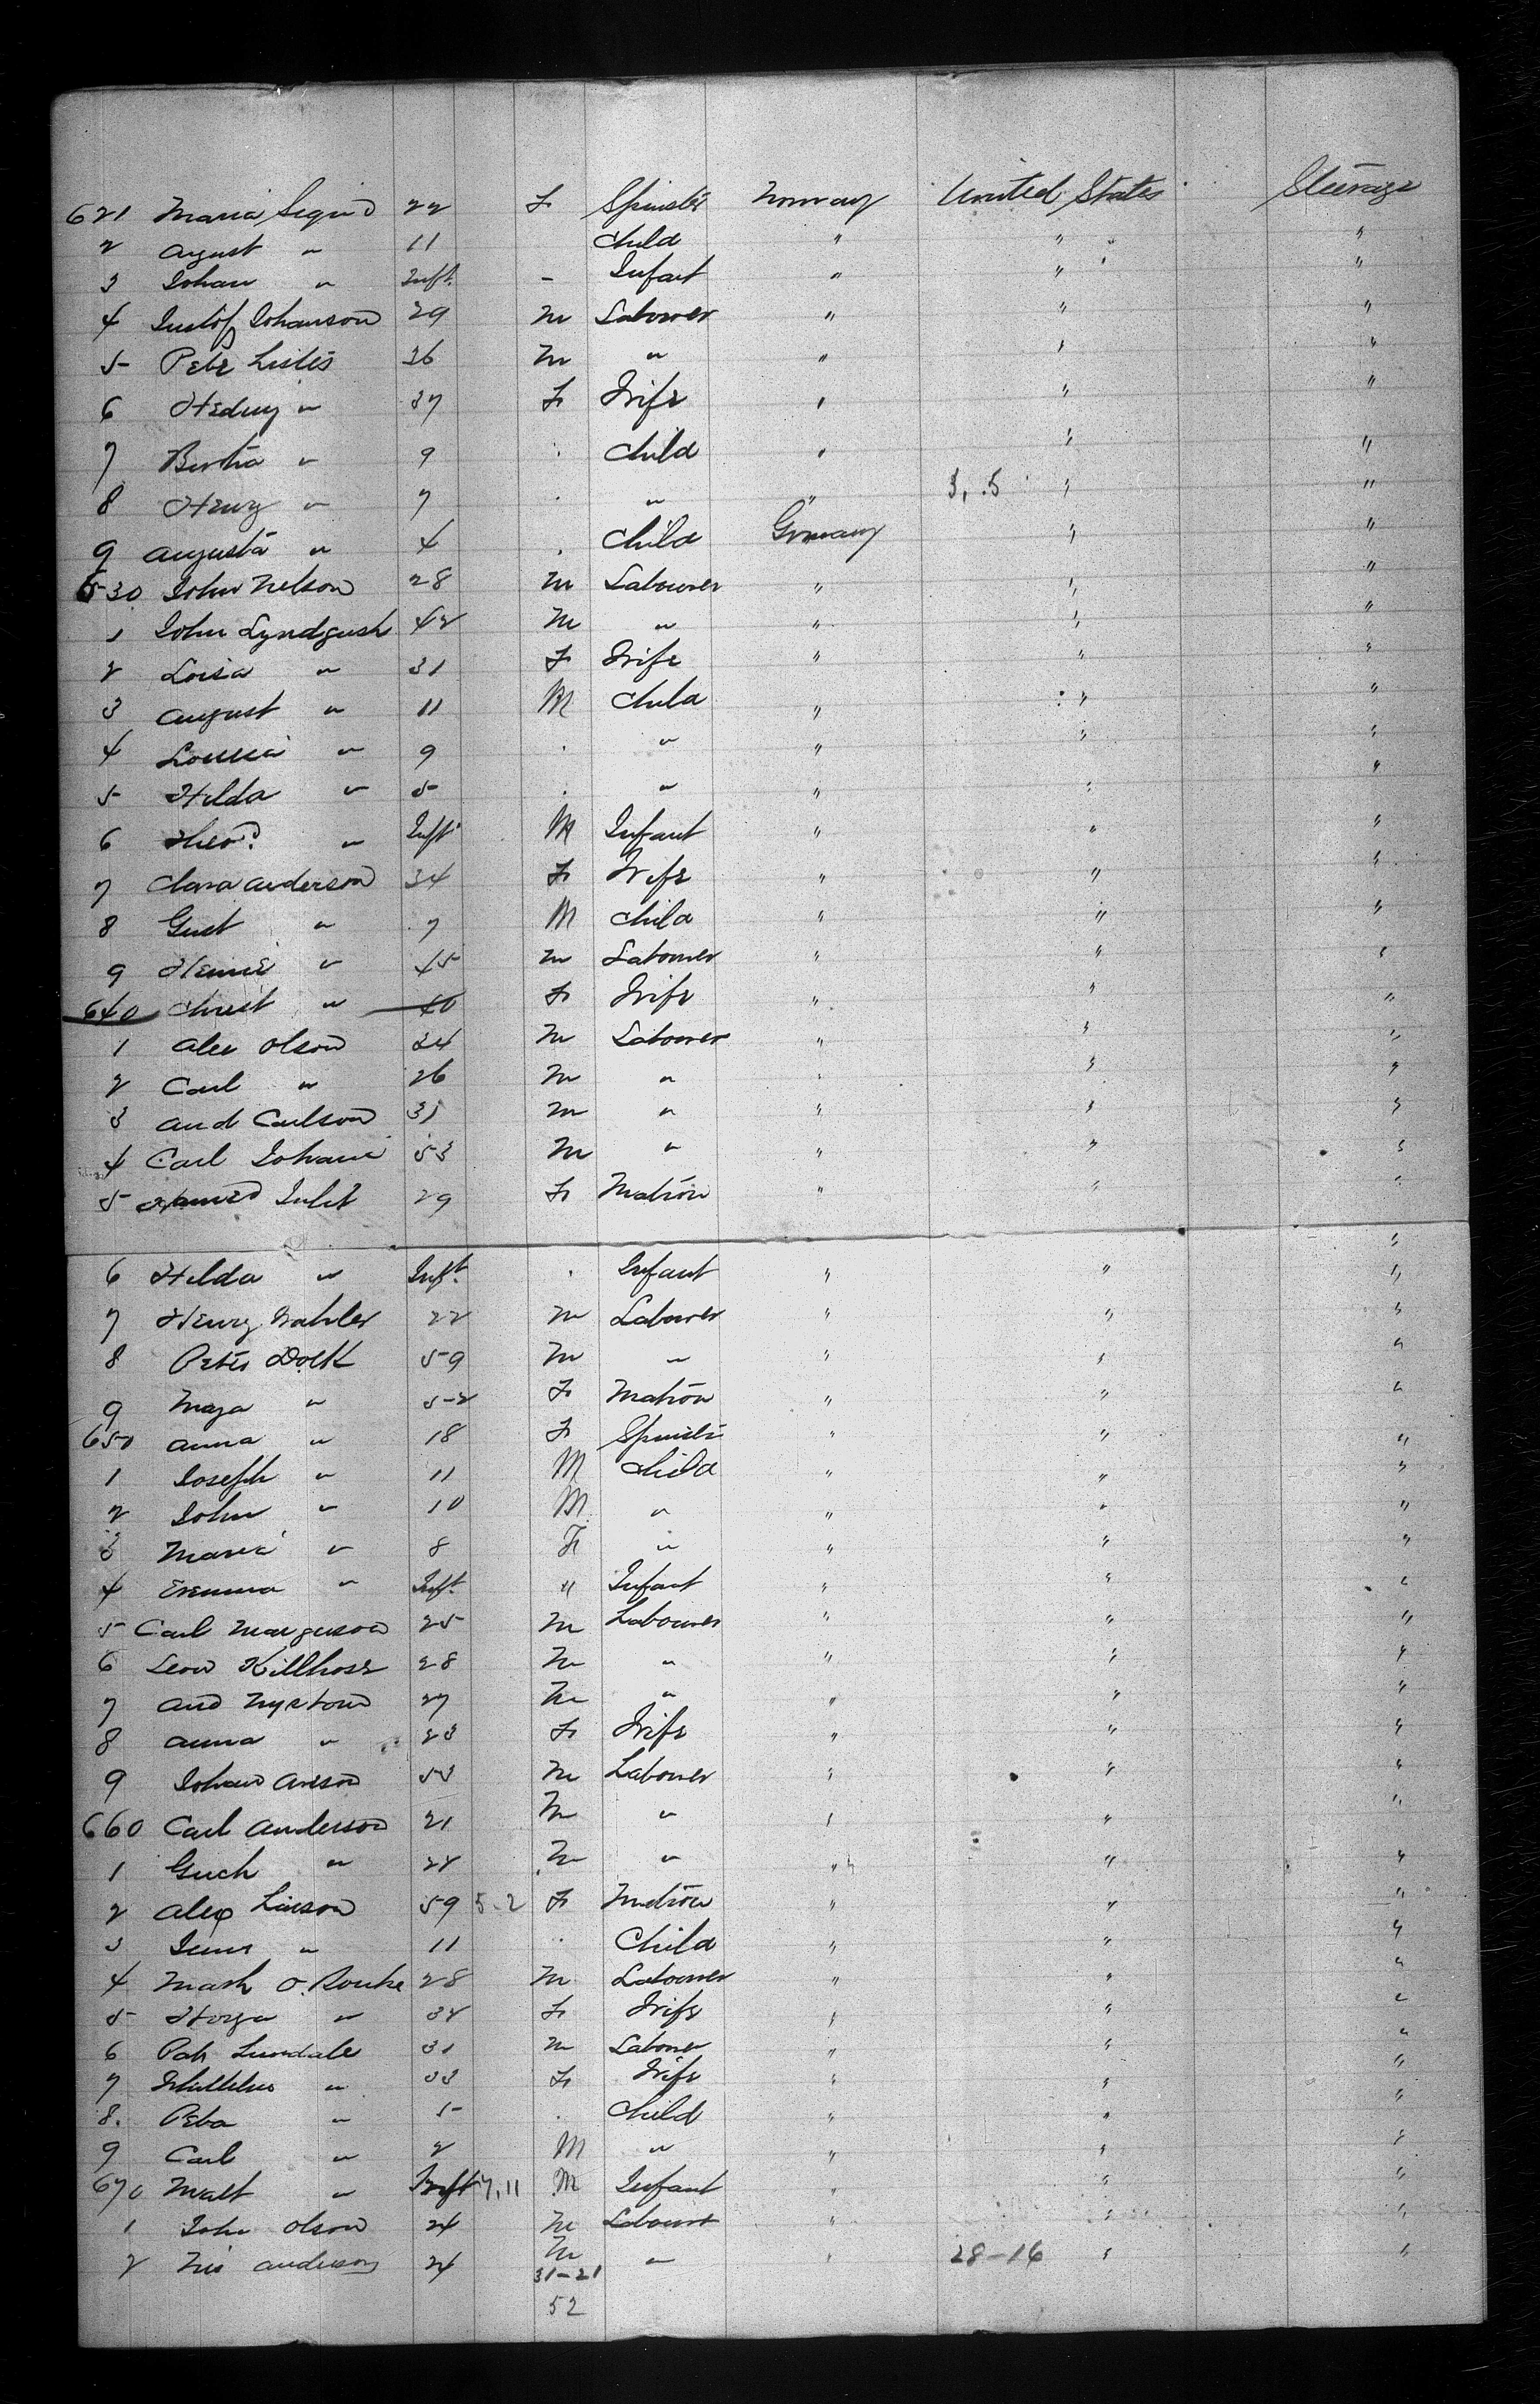 621 Maria Segrid 22 F Spinster Norway United States Steerage
2 August " 11 Child " " "
3 Johan " Inft. - Infant " " "
4 Gustof Johanson 29 M Labourer " " "
5 Pete Listes 36 M " " " "
6 Hedwig " 37 F Wife " " "
7 Bertha " 9 Child " " "
8 Henry " 7 " " 3, .5 " "
9 Augusta " 4 Child Germany " "
630 John Nelson 28 M Labourer " " "
1 John Lyndgush 42 M " " " "
2 Loisa " 31 F Wife " " "
3 August " 11 M Child " " "
4 " 9 " " " "
5 Hilda " 5 " " " "
6 Theod. " Inft M Infant " " "
7 Clara Anderson 34 F Wife " " "
8 Gust " 7 M Child " " "
9 " 45 M Labourer " " "
640 Christ " 40 F Wife " " "
1 Alex Olson 24 M Labourer " " "
2 Carl " 26 M " " " "
3 And Carlson 31 M " " " "
4 Carl Johani 53 M " " " "
5 29 F Matron " " "
6 Hilda " Inft. Infant " " "
7 Henry Wahler 22 M Labourer " " "
8 Peter Dolk 59 M " " " "
9 Maja " 52 F Matron " " "
650 Anna " 18 F Spinster " " "
1 Joseph " 11 M Child " " "
2 John " 10 M " " " "
3 Maria " 8 F " " " "
4 Emma " Inft. " Infant " " "
5 Carl Marguson 25 M Labourer " " "
6 Leon Killhose 28 M " " " "
7 And Nystom 27 M " " " "
8 Anna " 23 F Wife " " "
9 Johan Anson 53 M Labourer " " "
660 Carl Anderson 21 M " " " "
1 " 22 M " " " "
2 Alex Larson 59 5-2 F Matron " " "
3 " 11 Child " " "
4 Mash O. Rourke 28 M Labourer " " "
5 " 32 F Wife " " "
6 Pat Lundale 31 M Labourer " " "
7 " 33 F Wife " " "
8. Peba " 5 Child " " "
9 Carl " 2 M " " " "
670 Malt " Inft 7,11 M Infant " " "
1 John Olson 24 M Labourer " " "
2 Nis Anderson 24 M " " 28-16 " "
31-21
52